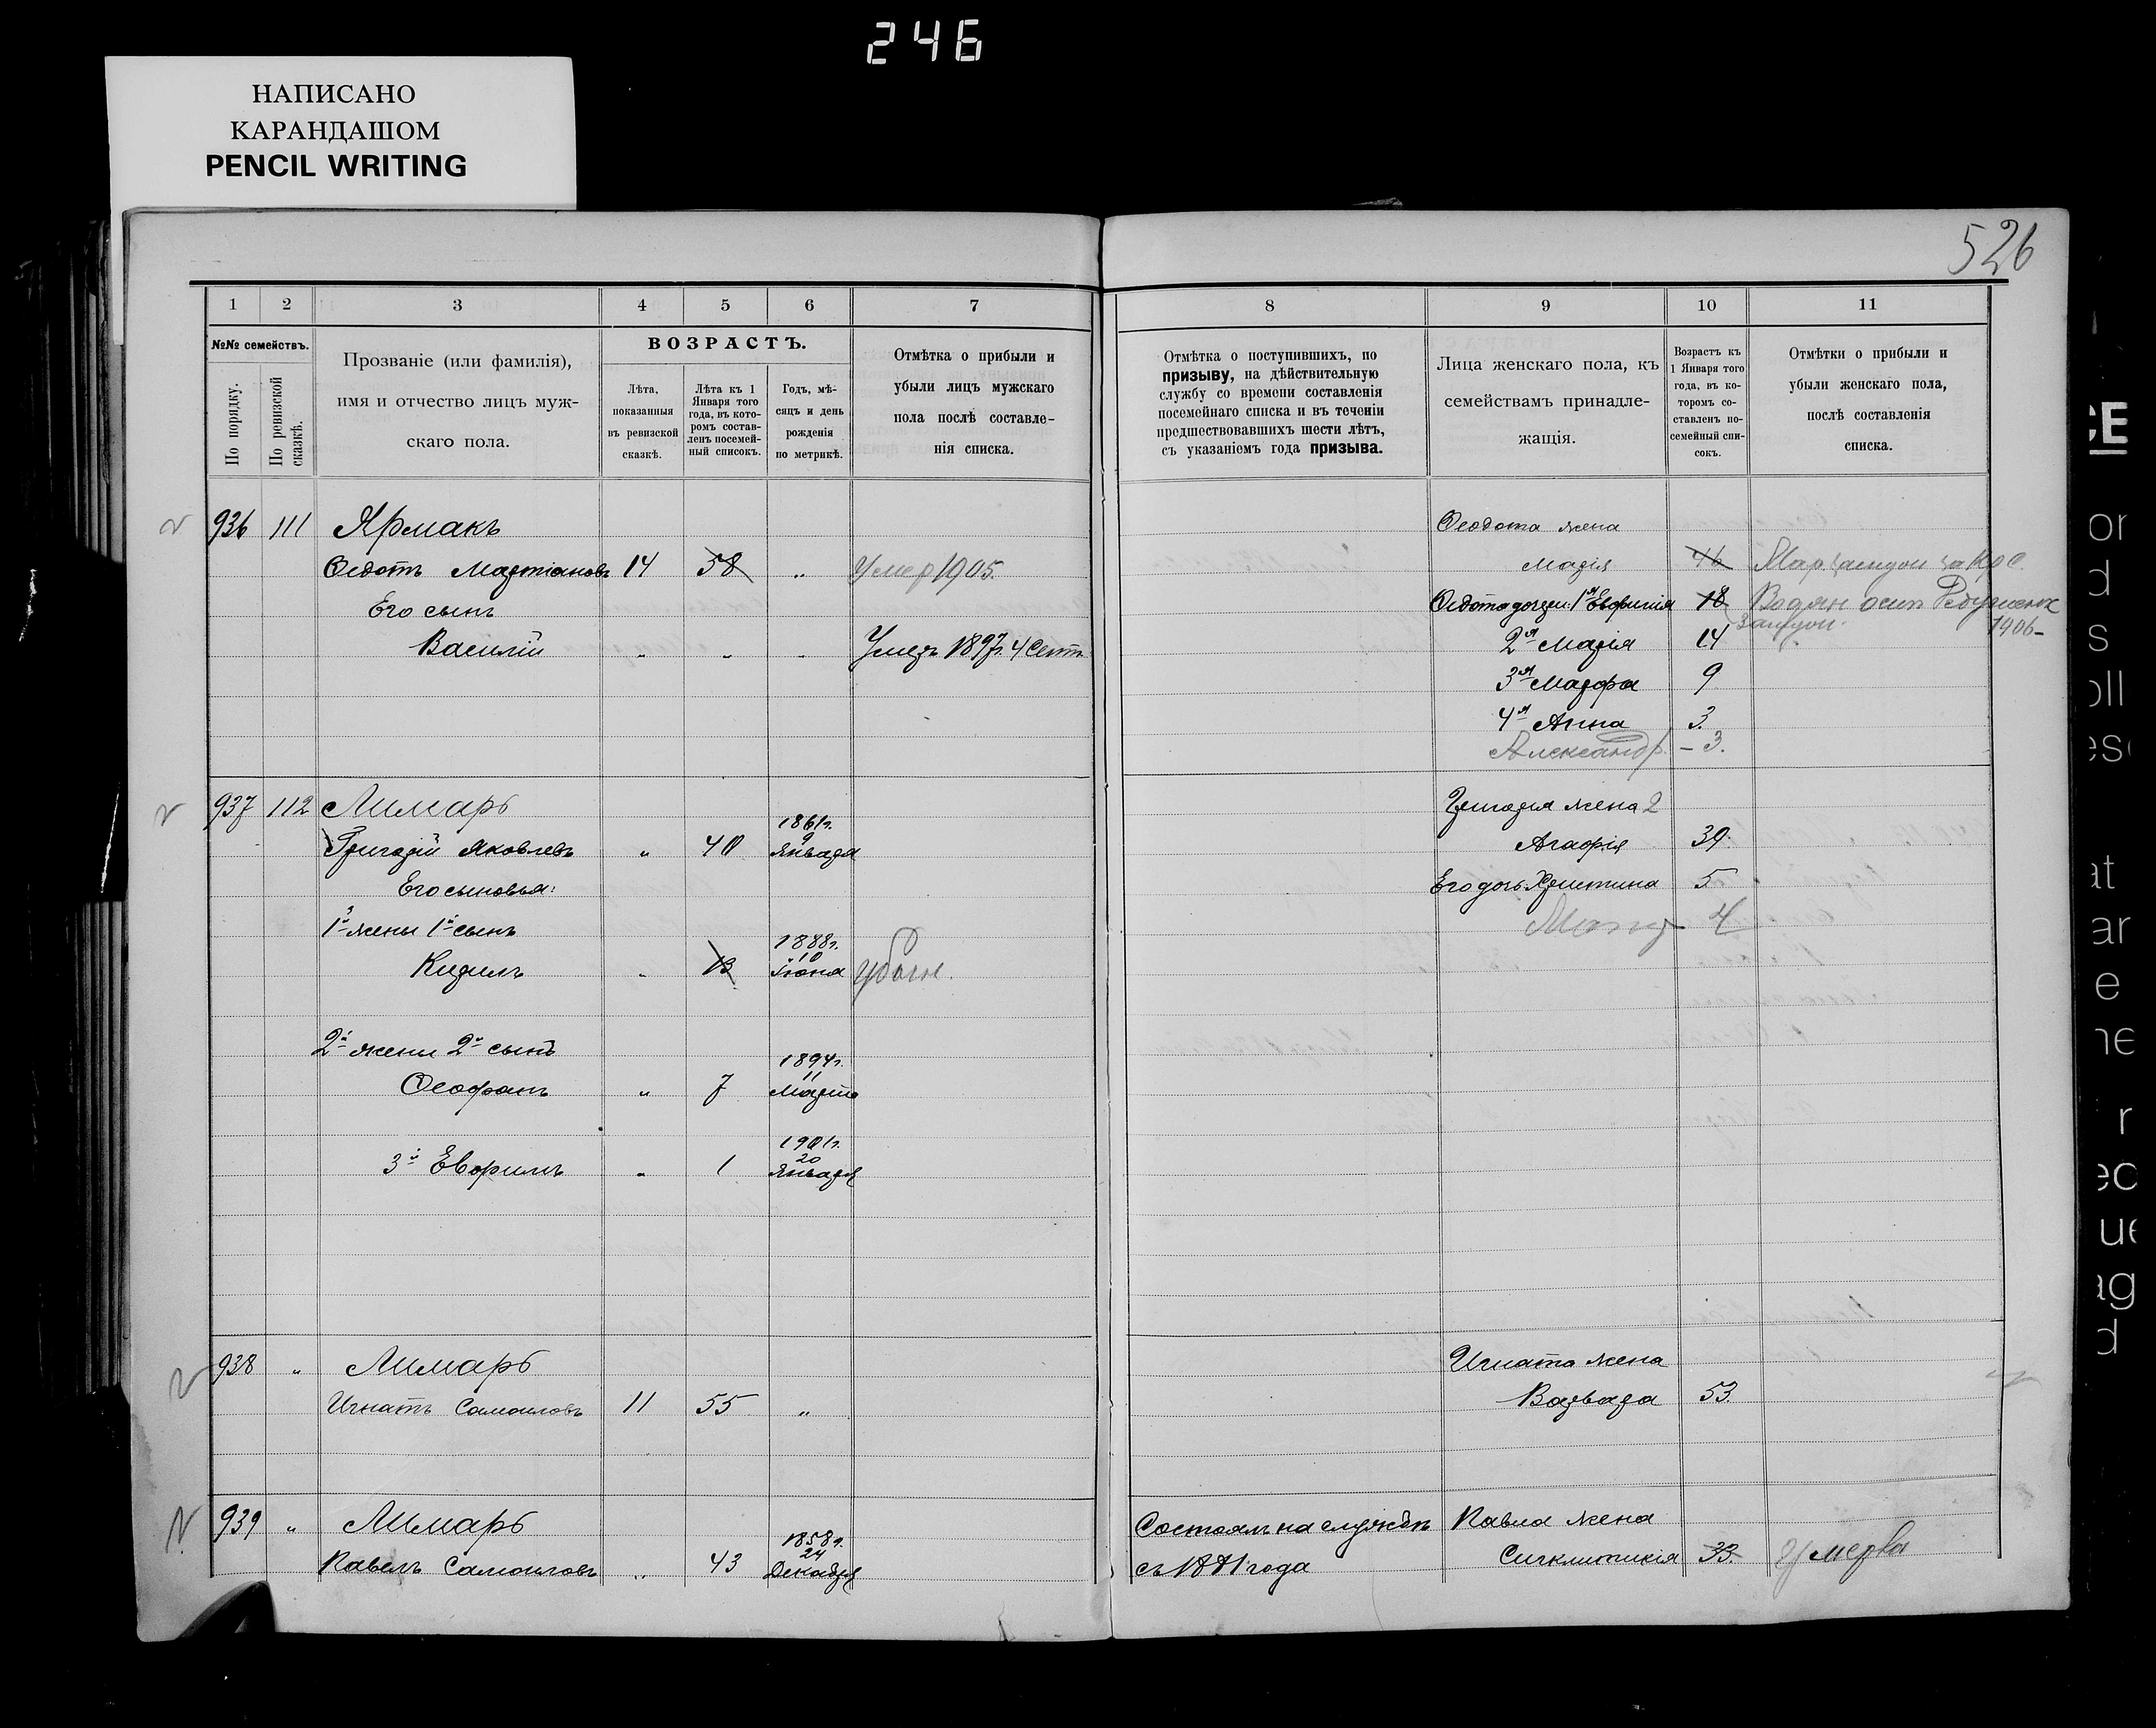 246
НАПИСАНО
КАРАНДАШОМ
PENCIL WRITING
526
1 2 3 4 5 6 7 8 9 10 11
№№ семействъ.
По порядку.
По ревизской сказкѣ.
Прозваніе (или фамилія),
имя и отчество лицъ муж-
скаго пола.
ВОЗРАСТЪ.
Лѣта,
показанныя
въ ревизской
сказкѣ.
Лѣта къ 1
Января того
года, въ кото-
ромъ состав-
ленъ посемей-
ный списокъ.
Годъ, мѣ-
сяцъ и день
рожденія
по метрикѣ.
Отмѣтка о прибыли и
убыли лицъ мужскаго
пола послѣ составле-
нія списка.
Отмѣтка о поступившихъ, по
призыву, на дѣйствительную
службу со времени составленія
посемейнаго списка и въ теченіи
предшествовавшихъ шести лѣтъ,
съ указаніемъ года призыва.
Лица женскаго пола, къ
семействамъ принадле-
жащія.
Возрастъ къ
1 Января того
года, въ ко-
торомъ со-
ставленъ по-
семейный спи-
сокъ.
Отмѣтки о прибыли и
убыли женскаго пола,
послѣ составленія
списка.
936 111 Ярмакъ Ѳеодота жена
Ѳедотъ Мартіановъ 14 58 „ Умер 1905. Марія 46
Его сынъ Ѳедота дочери: 1я Евфимія 18 Водян осип
замуж. 1906
Василій „ „ „ Умеръ 1897г. 4 Сент. 2я Марія 14
3я Марфа 9
4я Анна 3.
Александр. – 3.
937 112 Лимарь Григорія жена 2
Григорій Яковлевъ „ 40 1861г. 9 Января Агафія 39.
Его сыновья: Его дочь Христина 5
1й жены 1й сынъ 4
Кирилъ „ 13 1888г. 10 Іюня убит.
2й жены 2й сынъ
Ѳеофанъ „ 7 1894г. 11 Марта
3й Ефримъ „ 1 1901г. 20 Января
938 „ Лимарь Игната жена
Игнатъ Самоиловъ 11 55 „ Варвара 53.
939 „ Лимарь Состоялъ на службѣ Павла жена
Павелъ Самоиловъ „ 43 1858г. 24 Декабря съ года Синклитикія 33. Умерла